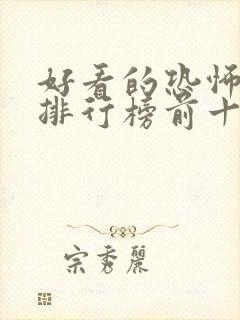 好看的恐怖
排行榜前十
宗秀丽